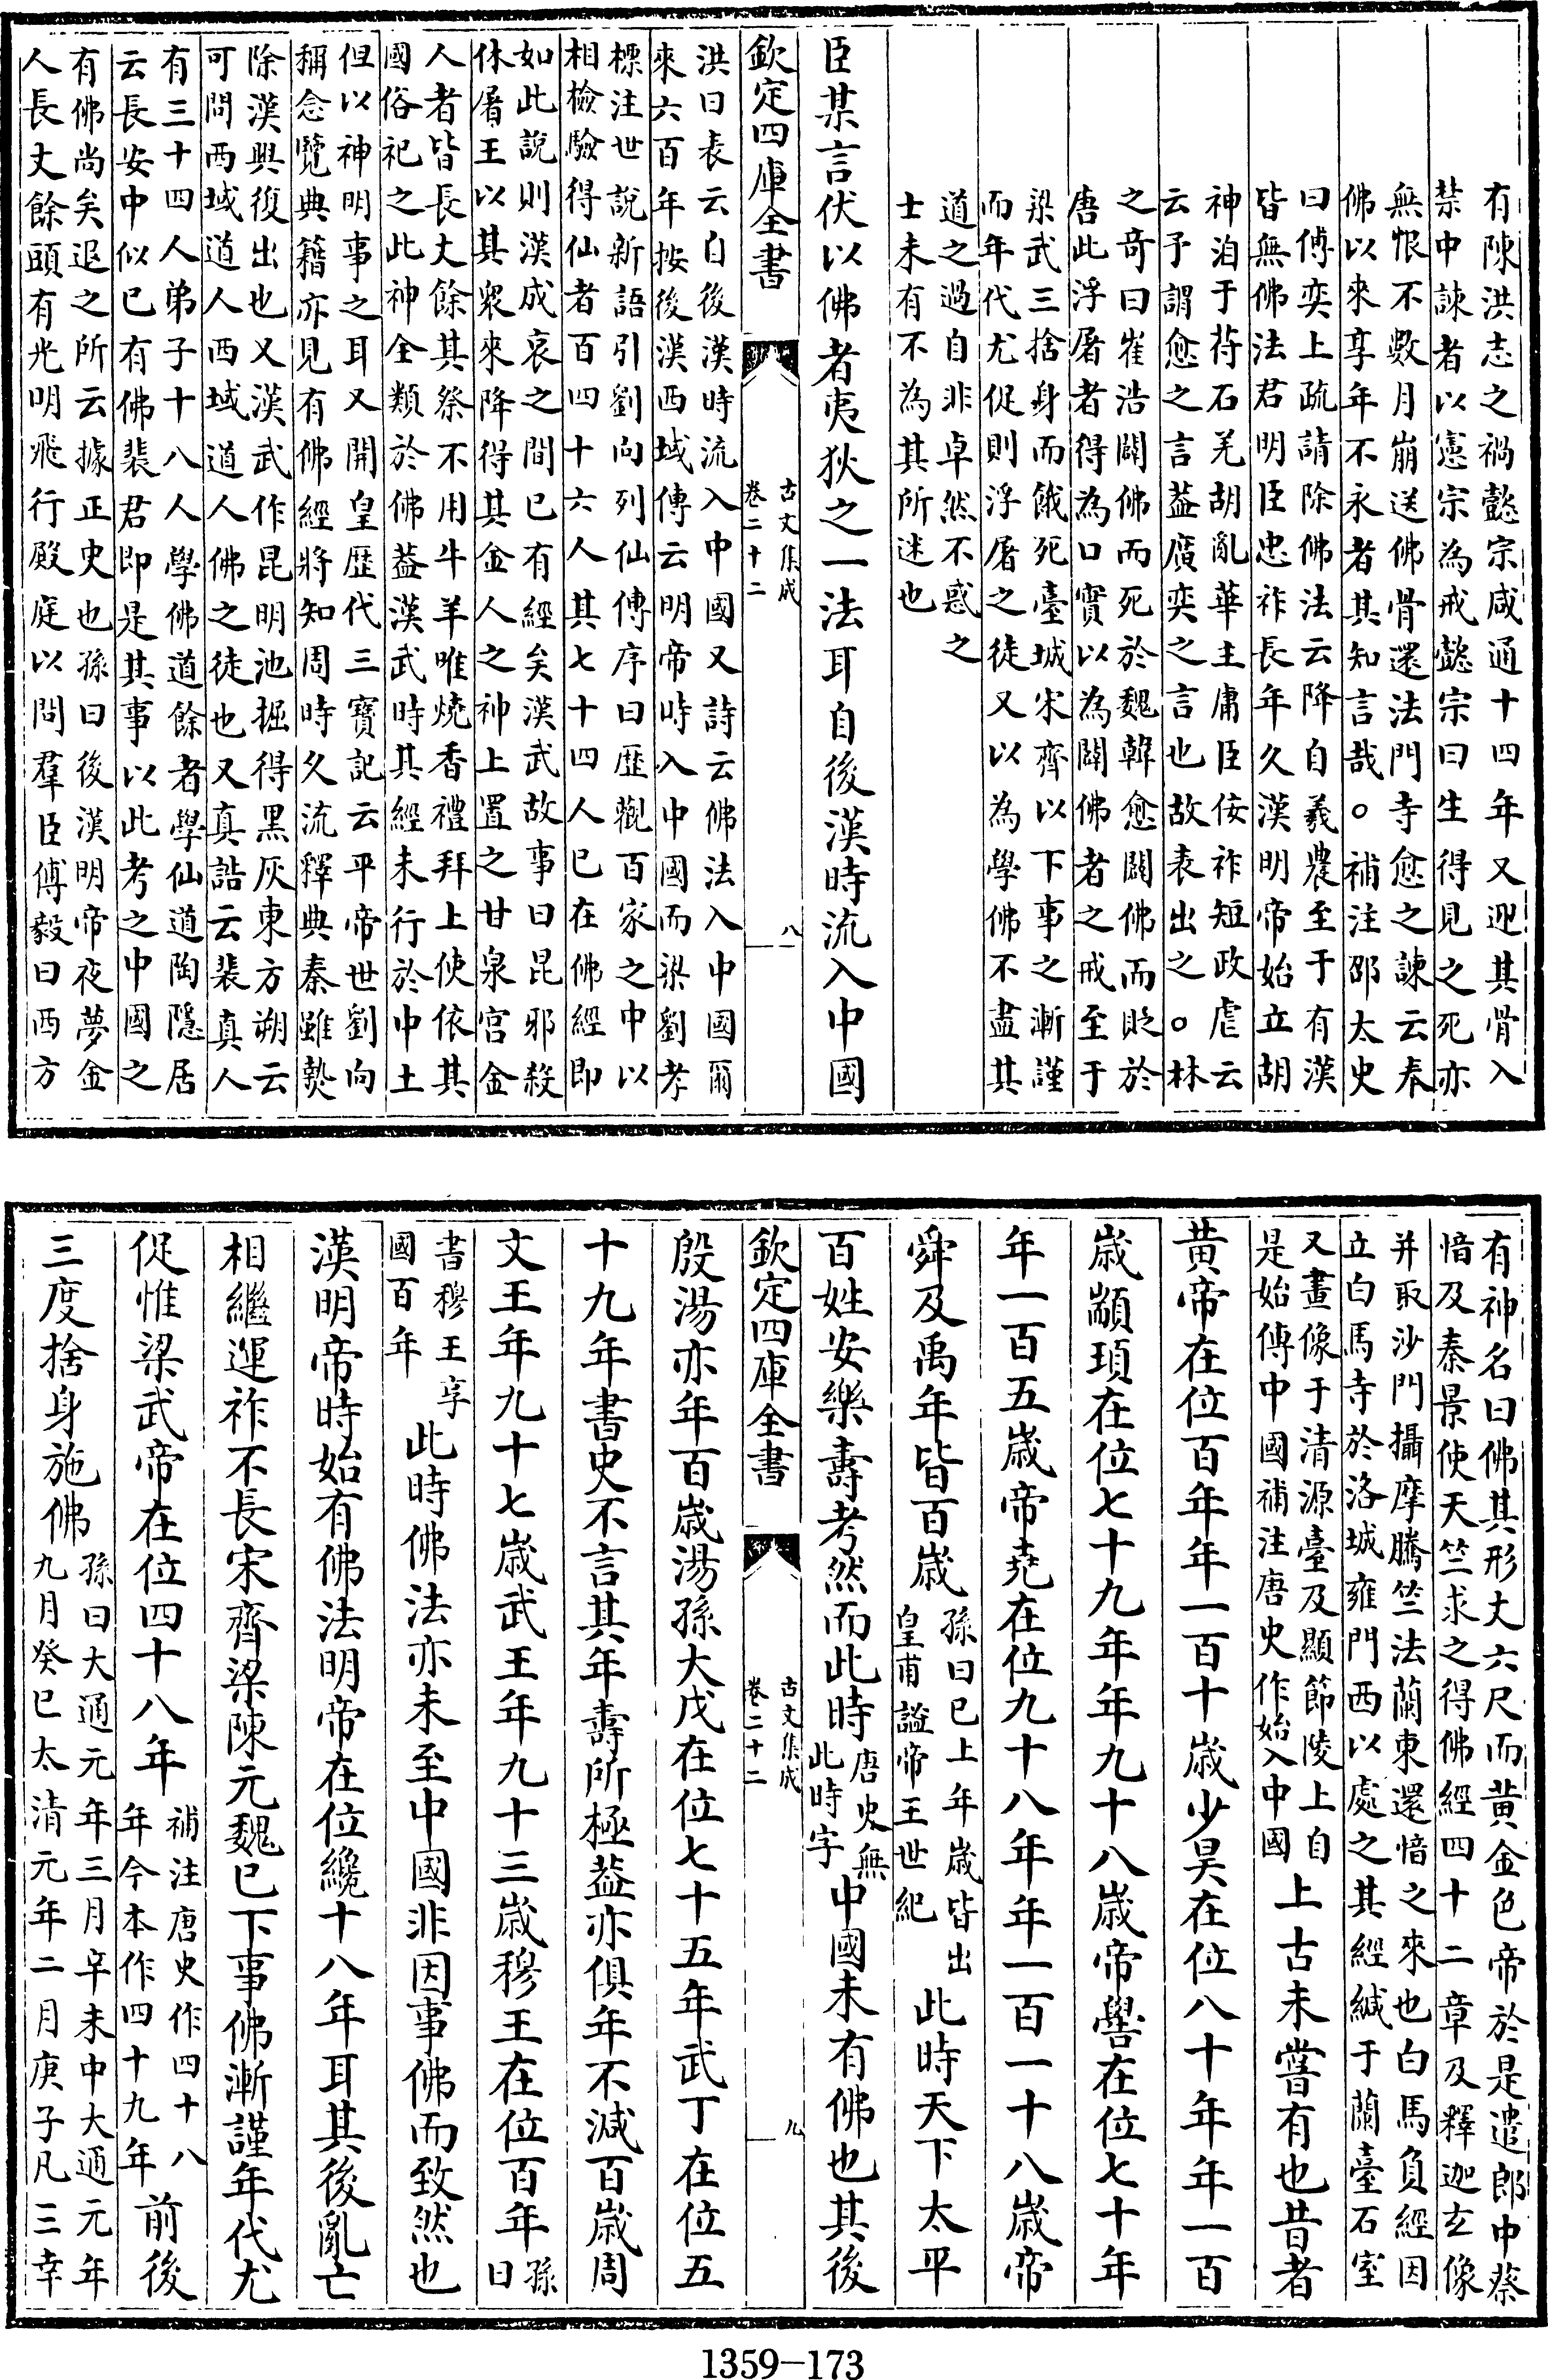 有陳洪志之禍懿宗咸通十四年又迎其骨入
禁中諫者以憲宗為戒懿宗曰生得見之死亦
無恨不數月崩送佛骨還法門寺愈之諫云奉
佛以來享年不永者其知言哉。補注邵太史
曰傅奕上疏請除佛法云降自羲農至于有漢
皆無佛法君明臣忠祚長年久漢明帝始立胡
神洎于苻石羌胡亂華主庸臣佞祚短政虐云
云予謂愈之言葢廣奕之言也故表出之。林
之奇曰崔浩闢佛而死於魏韓愈闢佛而貶於
唐此浮屠者得為口實以為闢佛者之戒至于
梁武三捨身而餓死臺城宋齊以下事之漸謹
而年代尤促則浮屠之徒又以為學佛不盡其
道之過自非卓然不惑之
士未有不為其所迷也
臣某言伏以佛者夷狄之一法耳自後漢時流入中國
欽定四庫全書
古文集成
卷二十二
八
洪曰表云自後漢時流入中國又詩云佛法入中國爾
來六百年按後漢西域傳云明帝時入中國而梁劉孝
標注世說新語引劉向列仙傳序曰歷觀百家之中以
相檢驗得仙者百四十六人其七十四人已在佛經即
如此說則漢成哀之間已有經矣漢武故事曰昆邪殺
休屠王以其衆來降得其金人之神上置之甘泉宮金
人者皆長丈餘其祭不用牛羊唯燒香禮拜上使依其
國俗祀之此神全類於佛葢漢武時其經未行於中土
但以神明事之耳又開皇歷代三寶記云平帝世劉向
稱念覽典籍亦見有佛經將知周時久流釋典秦雖爇
除漢興復出也又漢武作昆明池掘得黑灰東方朔云
可問西域道人西域道人佛之徒也又真誥云裴真人
有三十四人弟子十八人學佛道餘者學仙道陶隱居
云長安中似已有佛裴君即是其事以此考之中國之
有佛尚矣退之所云據正史也孫曰後漢明帝夜夢金
人長丈餘頭有光明飛行殿庭以問羣臣傅毅曰西方
有神名曰佛其形丈六尺而黄金色帝於是遣郎中蔡
愔及秦景使天竺求之得佛經四十二章及釋迦玄像
并取沙門攝摩騰竺法蘭東還愔之來也白馬負經因
立白馬寺於洛城雍門西以處之其經緘于蘭臺石室
又畫像于清源臺及顯節陵上自
是始傳中國補注唐史作始入中國
上古未嘗有也昔者
黄帝在位百年年一百十歳少昊在位八十年年一百
歳顓頊在位七十九年年九十八歳帝嚳在位七十年
年一百五歳帝堯在位九十八年年一百一十八歳帝
舜及禹年皆百歳
孫曰已上年歳皆出
皇甫謐帝王世紀
此時天下太平
百姓安樂壽考然而此時
唐史無
此時字
中國未有佛也其後
欽定四庫全書
古文集成
卷二十二
九
殷湯亦年百歳湯孫大戊在位七十五年武丁在位五
十九年書史不言其年壽所極葢亦俱年不減百歳周
文王年九十七歳武王年九十三歳穆王在位百年
孫
曰
書穆王享
國百年
此時佛法亦未至中國非因事佛而致然也
漢明帝時始有佛法明帝在位纔十八年耳其後亂亡
相繼運祚不長宋齊梁陳元魏已下事佛漸謹年代尤
促惟梁武帝在位四十八年
補注唐史作四十八
年今本作四十九年
前後
三度捨身施佛
孫曰大通元年三月辛未中大通元年
九月癸巳太清元年二月庚子凡三幸
1359-173